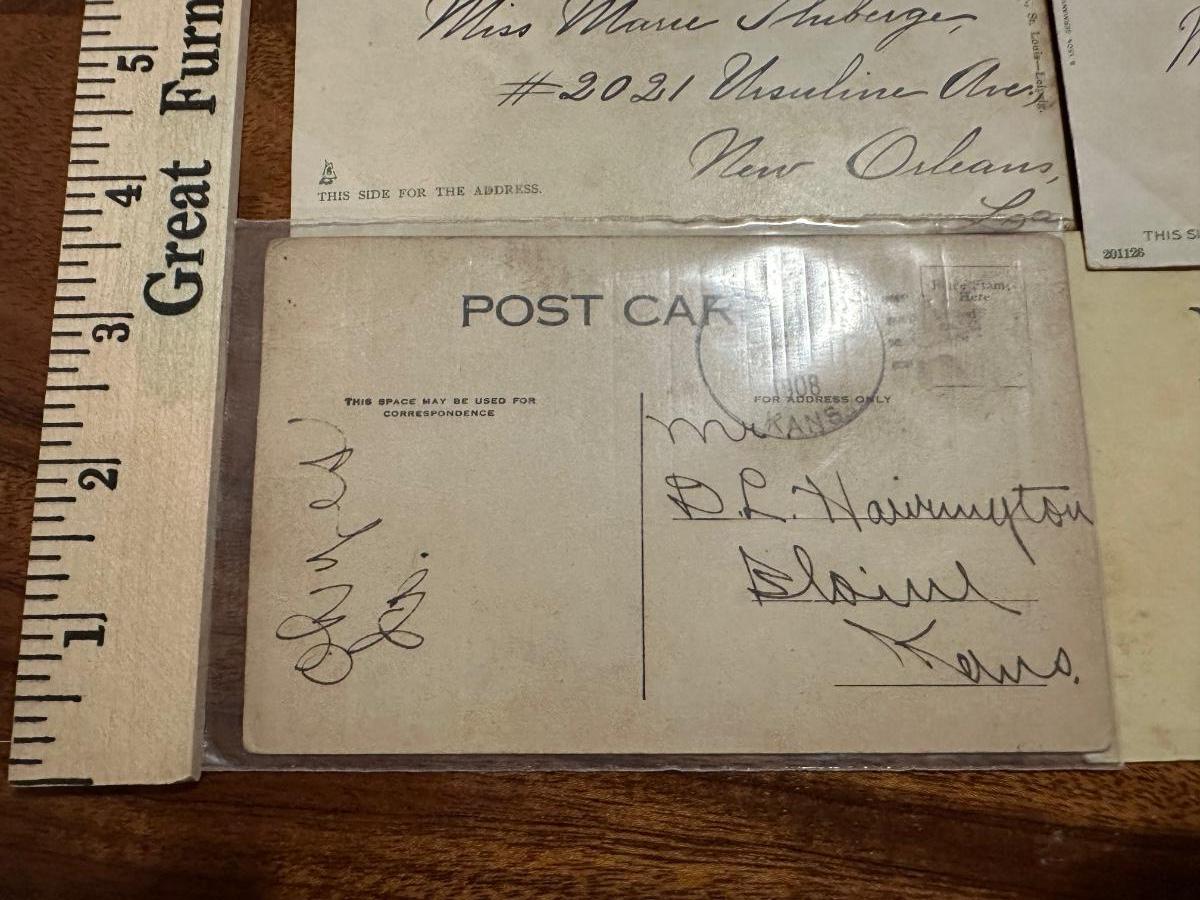 Great Furn
5
4
3
2
1
Miss Marie
#2021 Ursuline Ave,
New Orleans,
La
St. Louis—Leipzig.
THIS SIDE FOR THE ADDRESS.
THIS SI
201126
POST CAR
Place Stamp
Here
1908
KANS.
THIS SPACE MAY BE USED FOR
CORRESPONDENCE
FOR ADDRESS ONLY
Mr
D. L. Harrington
Elaine
Kans.